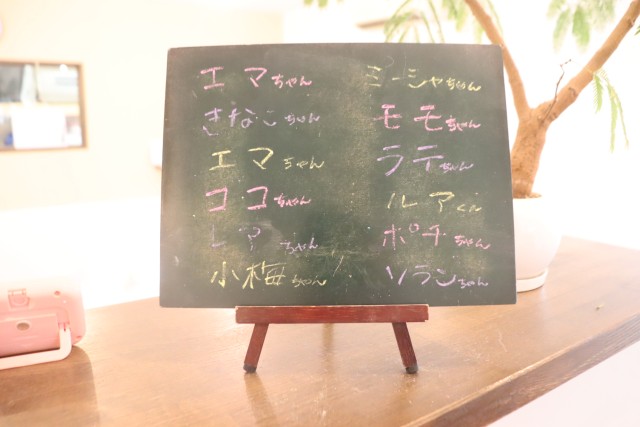 エマちゃん
きなこちゃん
エマちゃん
ココちゃん
レアちゃん
小梅ちゃん
ミーシャちゃん
モモちゃん
ラテちゃん
ルアくん
ポチちゃん
ソランちゃん